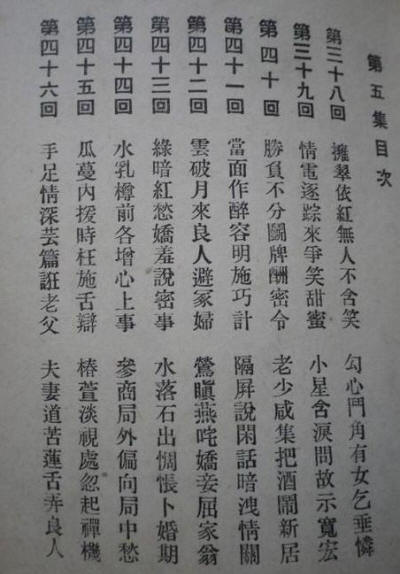 第五集目次
第三十八回 擁翠依紅無人不含笑 勾心鬥角有女乞垂憐
第三十九回 情電逐踪來爭笑甜蜜 小星含淚問故示寬宏
第四十回 勝負不分鬭牌酬密令 老少咸集把酒鬧新居
第四十一回 當面作醉容明施巧計 隔屏說閑話暗洩情關
第四十二回 雲破月來良人避冢婦 鶯瞋燕咤嬌妾屈家翁
第四十三回 綠暗紅愁嬌羞說密事 水落石出惆悵卜婚期
第四十四回 水乳樽前各增心上事 參商局外偏向局中愁
第四十五回 瓜蔓內援時枉施舌辯 椿萱淡視處忽起禪機
第四十六回 手足情深芸篇誑老父 夫妻道苦蓮舌弄良人